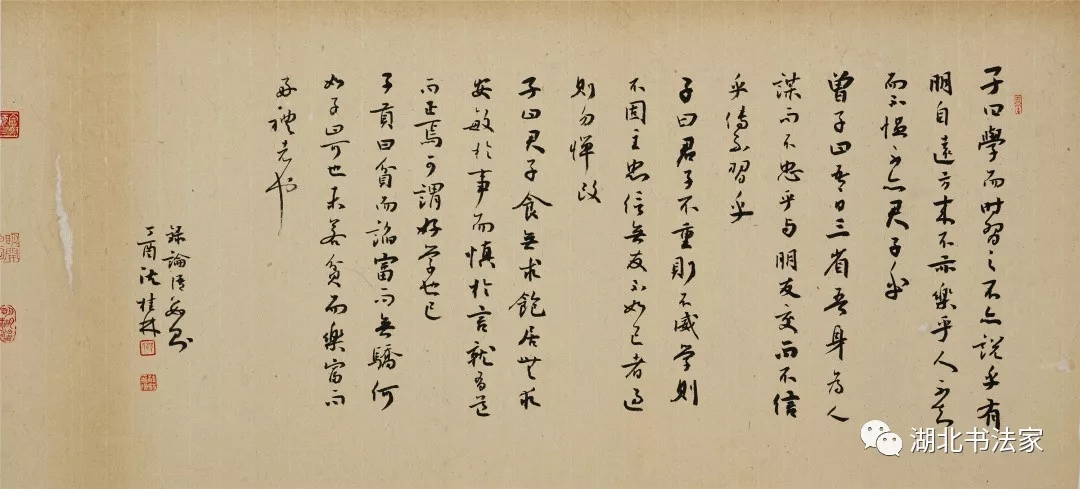 子曰學而時習之不亦說乎有
朋自遠方來不亦樂乎人不知
而不愠不亦君子乎
曾子曰吾日三省吾身為人
謀而不忠乎与朋友交而不信
乎傳不習乎
子曰君子不重則不威学則
不固主忠信無友不如己者過
則勿憚改
子曰君子食無求飽居無求
安敏於事而慎於言就有道
而正焉可謂好学也已
子貢曰貧而諂富而無驕何
如子曰可也未若貧而樂富而
好禮者也
錄論語
丁酉沈桂林
湖北书法家